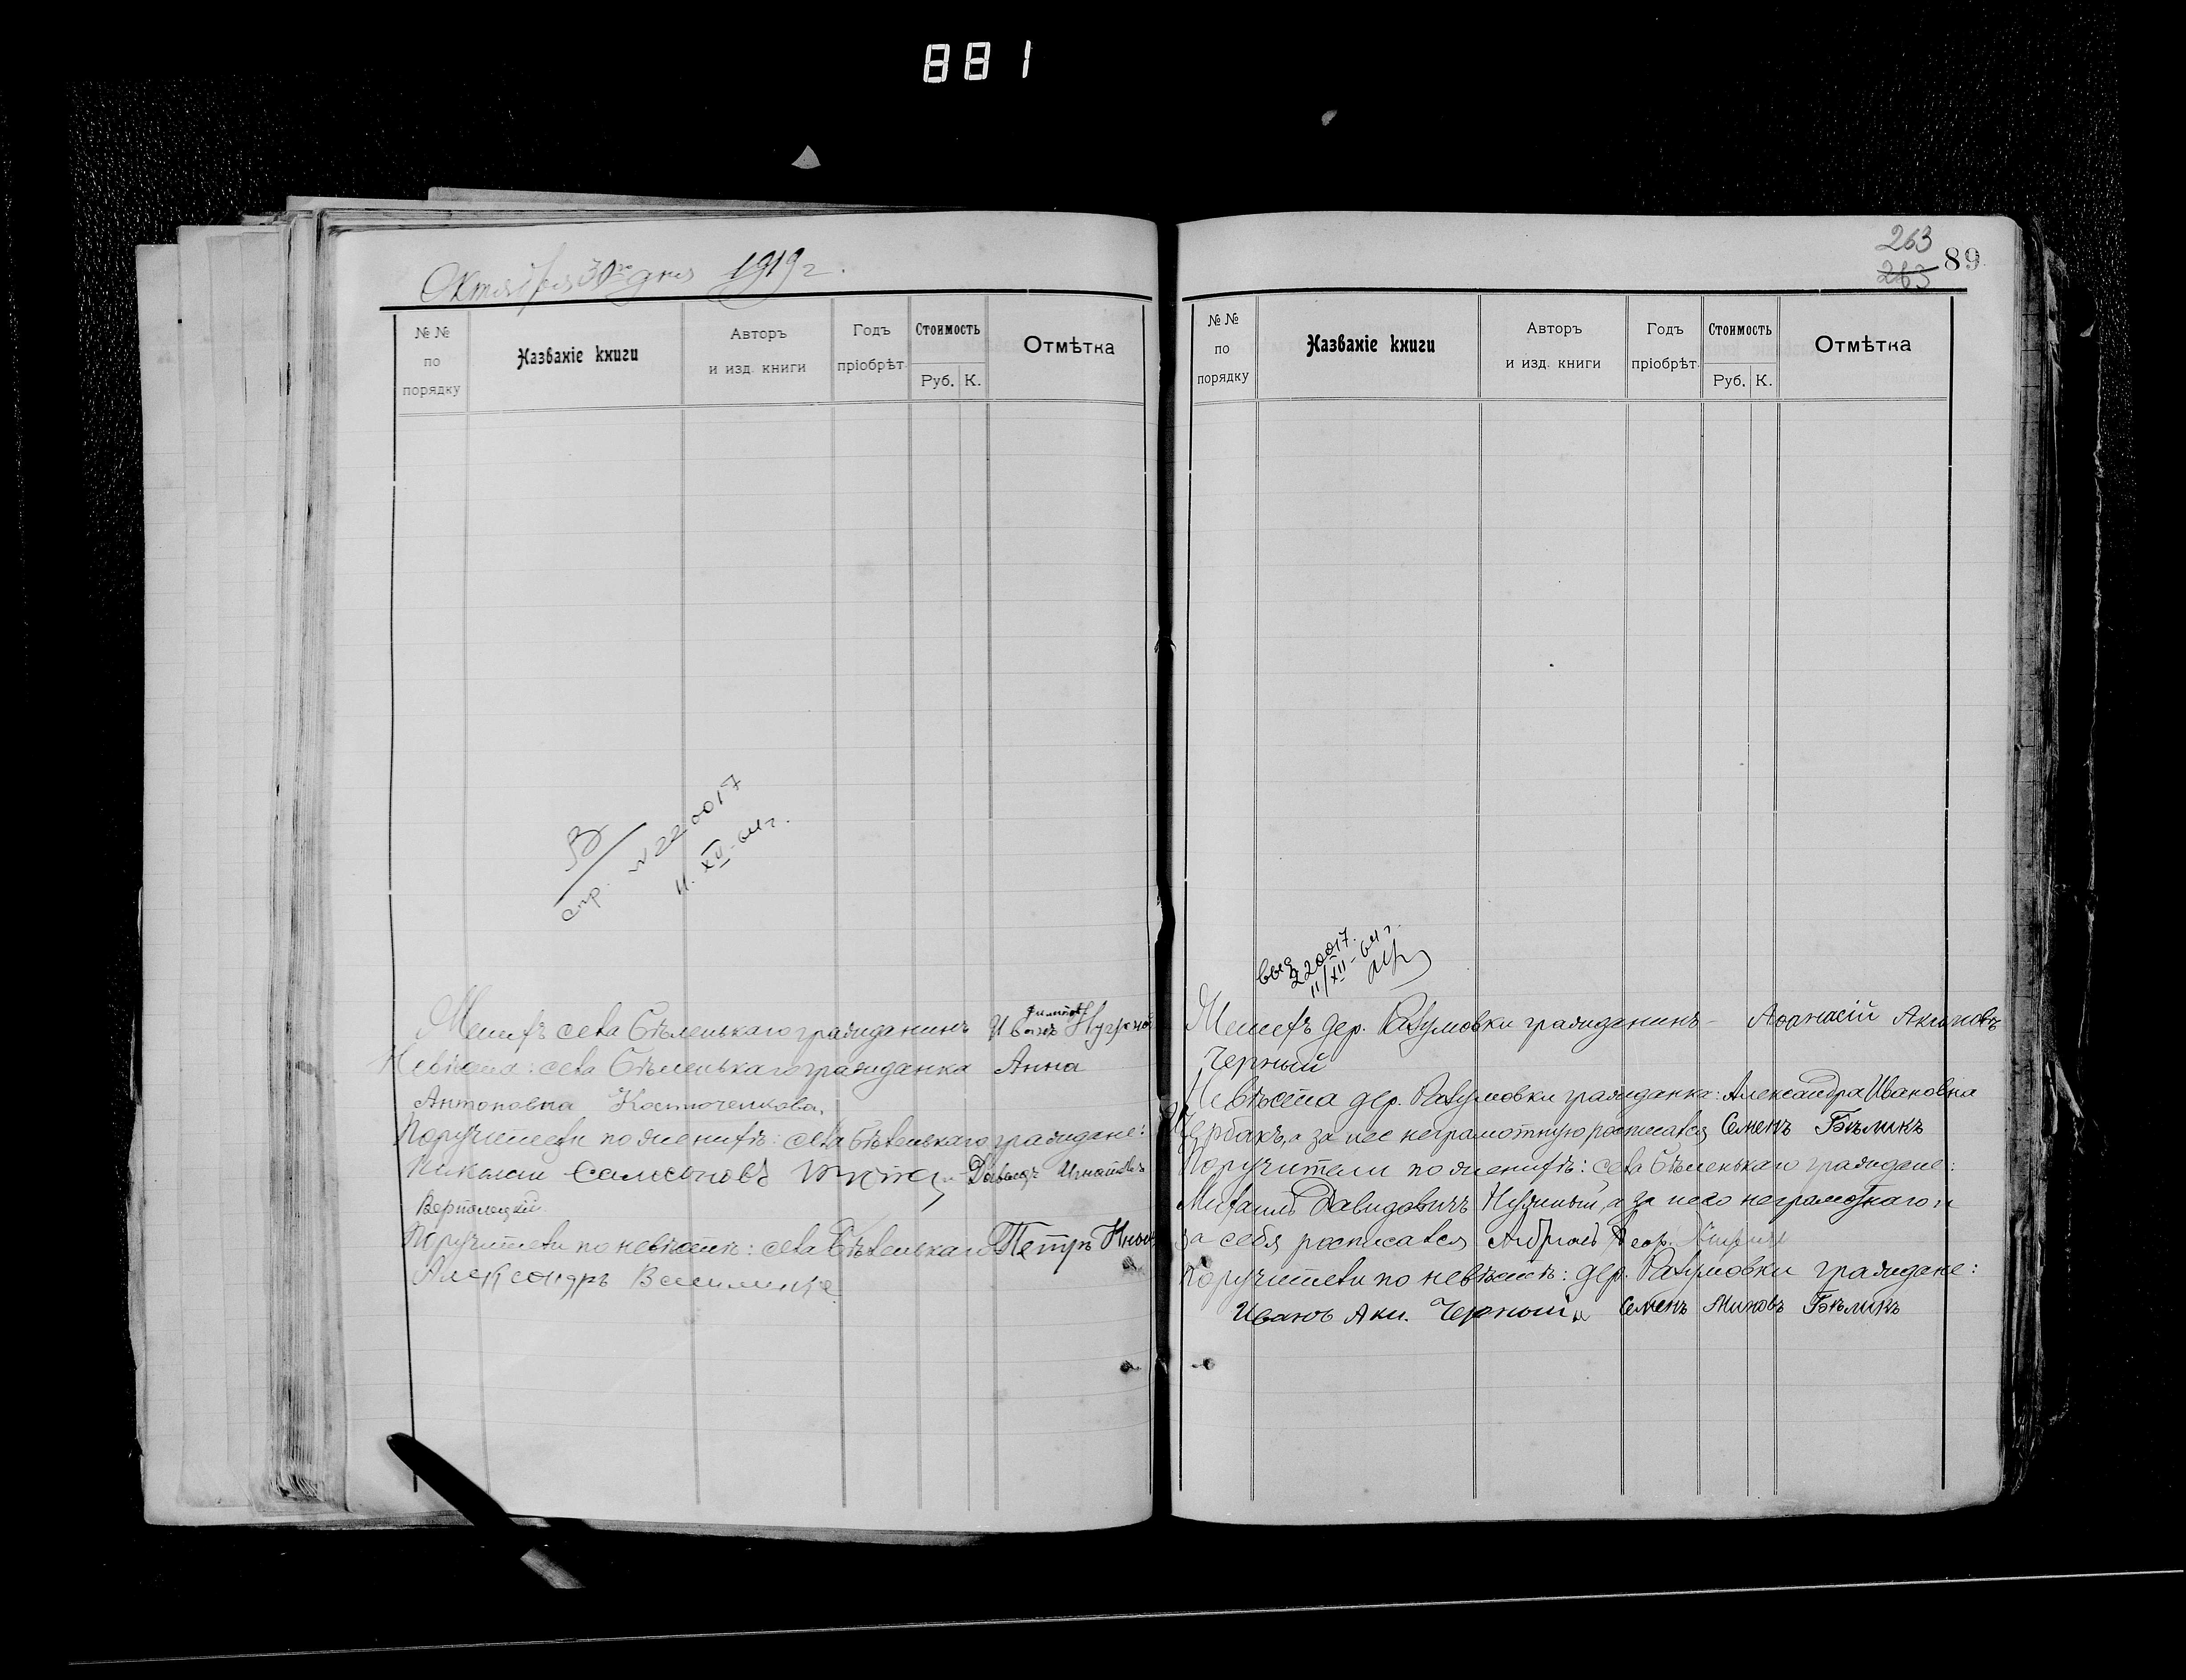 881
Октября 30го дня 1919 г.
№ № по порядку
Названіе книги
Авторъ и изд. книги
Годъ пріобрѣт.
Стоимость
Руб. К.
Отмѣтка
стр. № 220017
11. XII-64 г.
Женихъ села Бѣленькаго гражданинъ Иванъ
Невѣста: села Бѣленькаго гражданка Анна
Антоновна Костюченкова
Поручители по женихѣ: села Бѣленькаго граждане:
Николай Самсоновъ Давыдъ Игнатовъ
Верполецкій
Поручители по невѣстѣ: села Бѣленькаго Петръ
Александръ
263
263 89
№ № по порядку
Названіе книги
Авторъ и изд. книги
Годъ пріобрѣт.
Стоимость
Руб. К.
Отмѣтка
выд
220017.
11/XII-64 г.
Женихъ дер. Разумовки гражданинъ - Афанасій Акимовъ
Черный
Невѣста дер. Разумовки гражданка: Александра Ивановна
Щербакъ, а за нее неграмотную росписался Семенъ Бѣликъ
Поручители по женихѣ: села Бѣленькаго граждане:
Михаилъ Давидовичъ Нужный, а за него неграмотнаго и
за себя росписался
Поручители по невѣстѣ: дер. Разумовки граждане:
Иванъ Аки. Черный и Семенъ Миновъ Бѣликъ